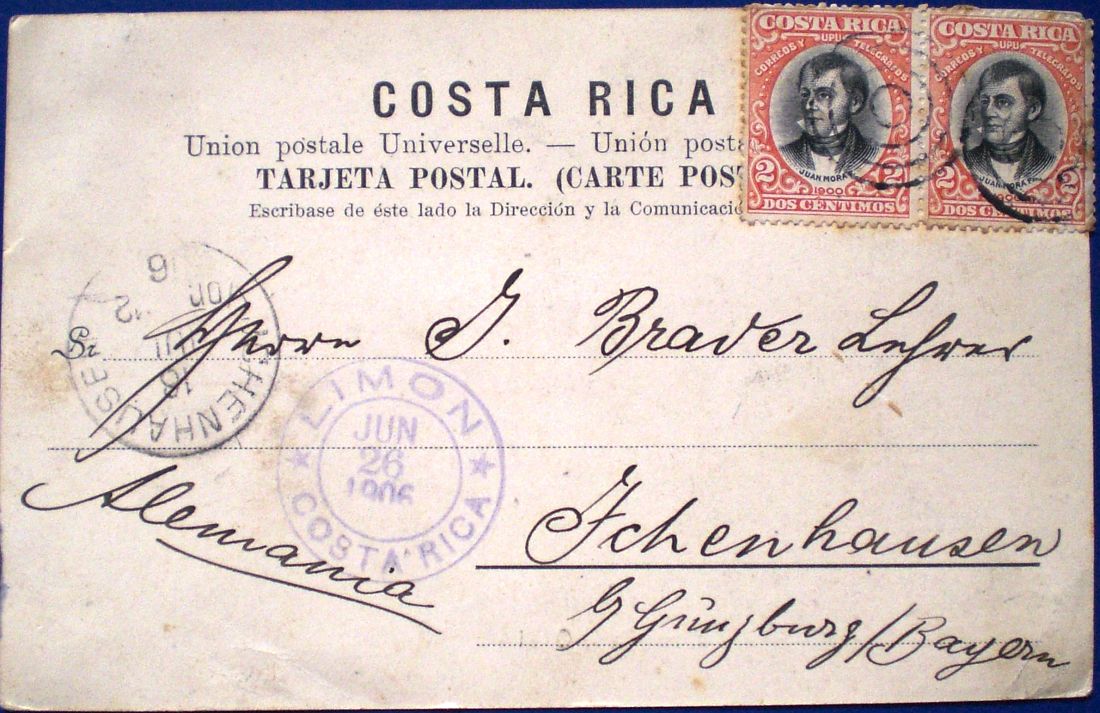 COSTA RICA
Union postale Universelle. — Unión posta
TARJETA POSTAL. (CARTE POS
Escribase de éste lado la Dirección y la Comunicació
COSTA RICA
CORREOS Y UPU TELEGRAFOS
JUAN MORA F.
2 1900 2
DOS CENTIMOS
COSTA RICA
CORREOS Y UPU TELEGRAFOS
JUAN MORA F.
2
DOS CENTIMOS
Sr Herrn J. Brader Lehrer
ICHENHAUSE
LIMON
JUN
26
1906
COSTA RICA
Alemania
Ichenhausen
Günzburg/Bayern